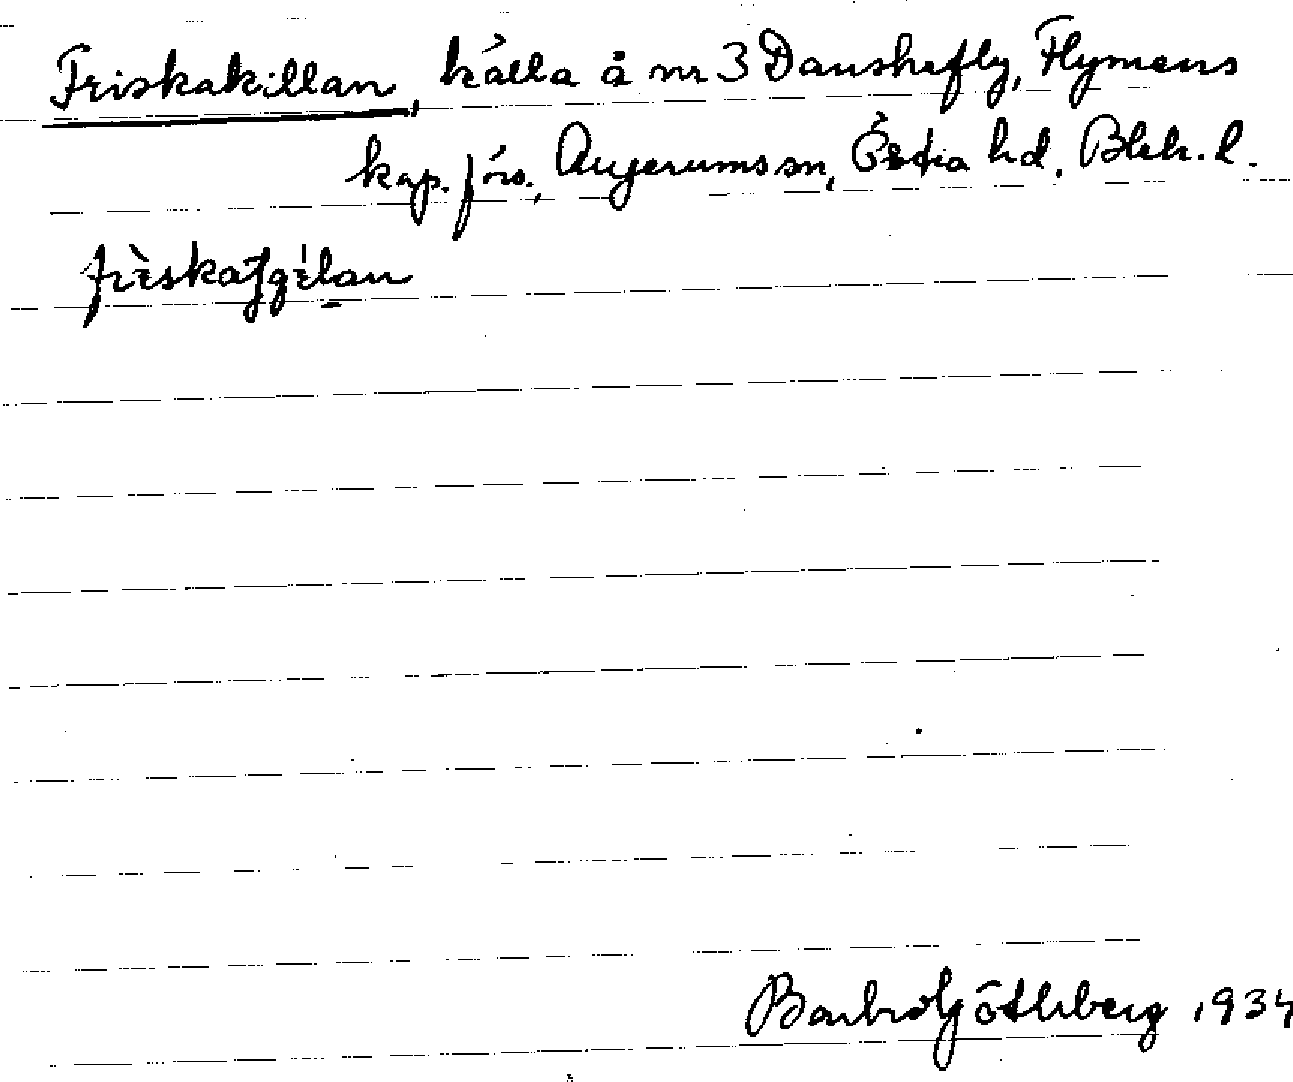 Friskakillan, källa å nr 3 Danskefly, Flymens
kap. förs., Augerums sn, Östra hd, Blek. l.
Barbro Götlberg 1934